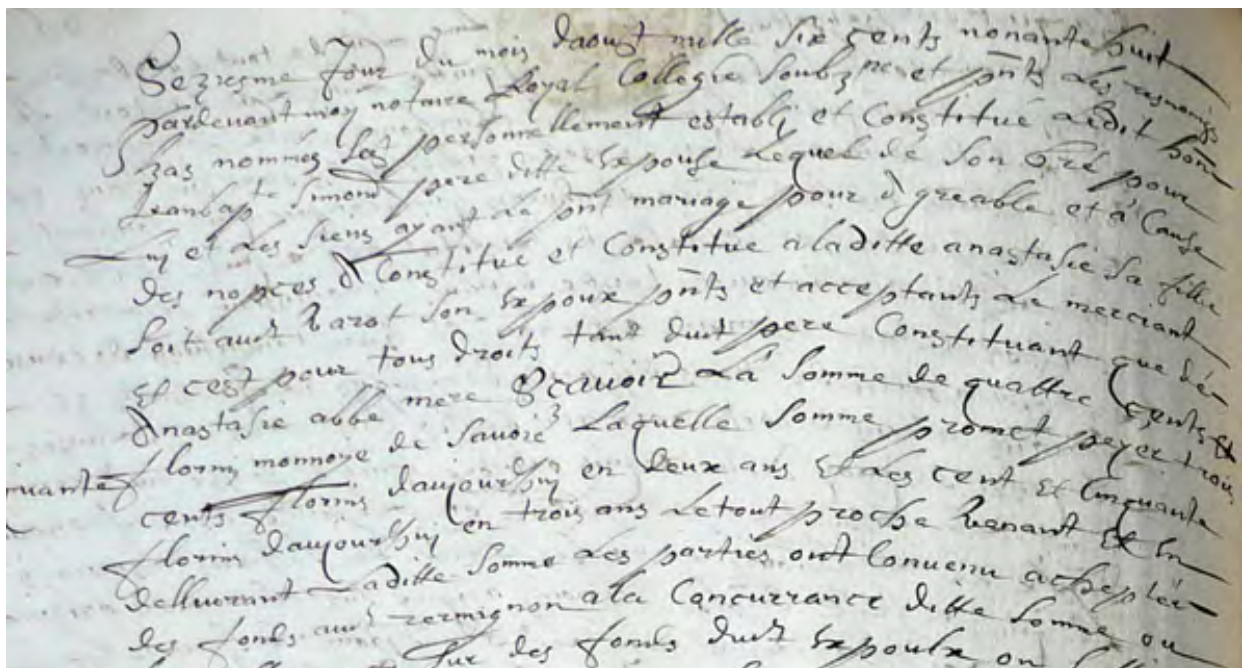 Seziesme Jour du mois daoust mille six cents nonante huit
Pardevant moy notaire Royal Collegié soubzne et pnts Les tesmoings
bas nommes s'est personnellement establi et Constitué Ledit honn
Jeanbapte Simond pere ditte Expouse Lequel de son gré pour
Luy et Les siens ayant Le pnt mariage pour Agreable et a Cause
des nopces A Constitué et Constitue a laditte anastasie sa fille
soit audt Barot son Expoux pnts et acceptants Le merciant
Et cest pour tous droits tant dudt pere Constituant que
Anastasie abbe mere Scavoir La somme de quattre Cents Et
florins monnoye de Savoie Laquelle somme promet peyer trois
cents florins daujourdhuy en deux ans Et Les cent Et Cinquante
florins daujourdhuy en trois ans Le tout proche Venant Et En
dellivrant Laditte somme Les parties ont Convenu achepter
des fonds audt termignon a la Concurrance ditte somme ou
sur des fonds dudt Expoulx ou